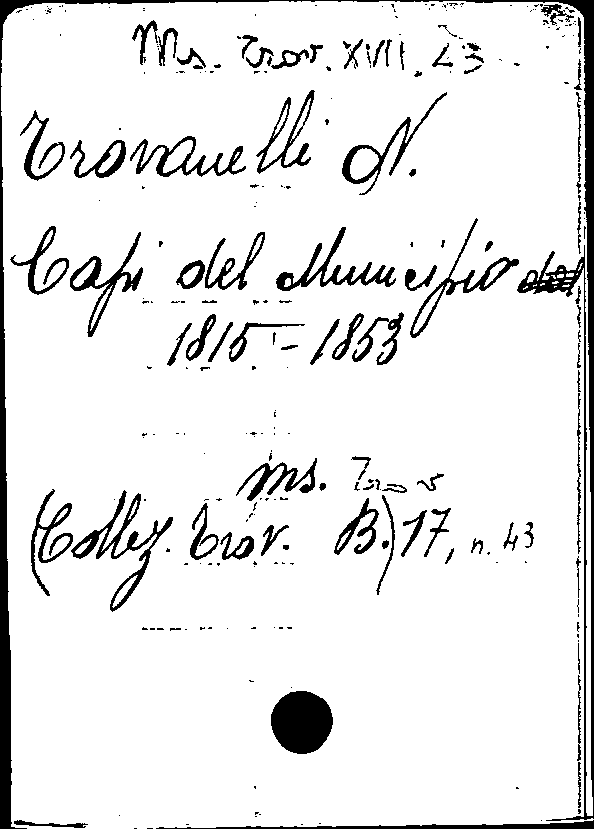 Ms. Trov. XVII. 43
Trovanelli N.
Capi del Municipio
1815 - 1853
ms. Trov
(Collez. Trov. B.) 17, n. 43